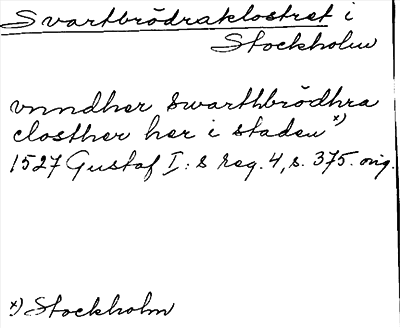 Svartbrödraklostret i
Stockholm
vnndher swarthbrödhra
closther her i staden *)
1527 Gustaf I:s reg. 4, s. 375. orig.
*) Stockholm